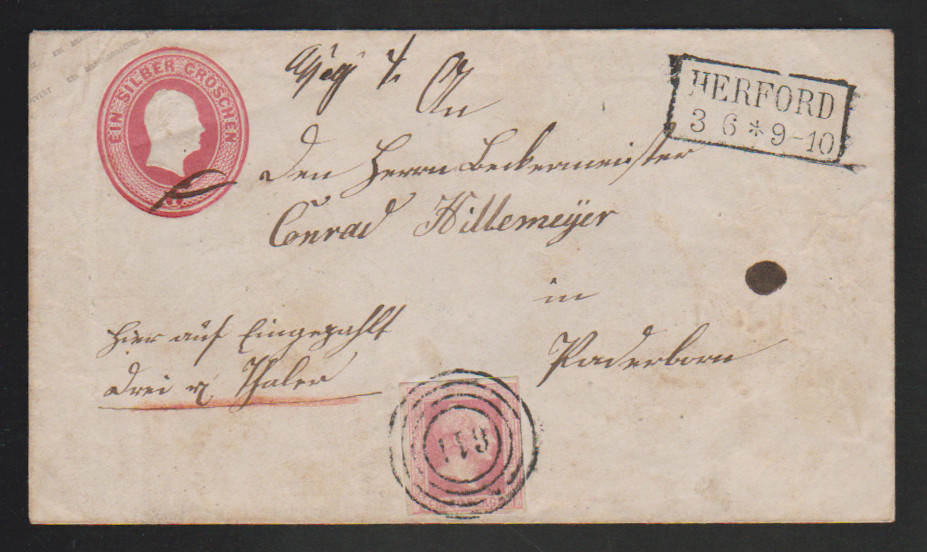 EIN SILBER GROSCHEN
HERFORD
3 6 * 9-10
An
Den Herrn Beckermeister
Conrad Hillemeÿer
in
Paderborn
Hier auf Eingezahlt
Drei rt Thaler
611